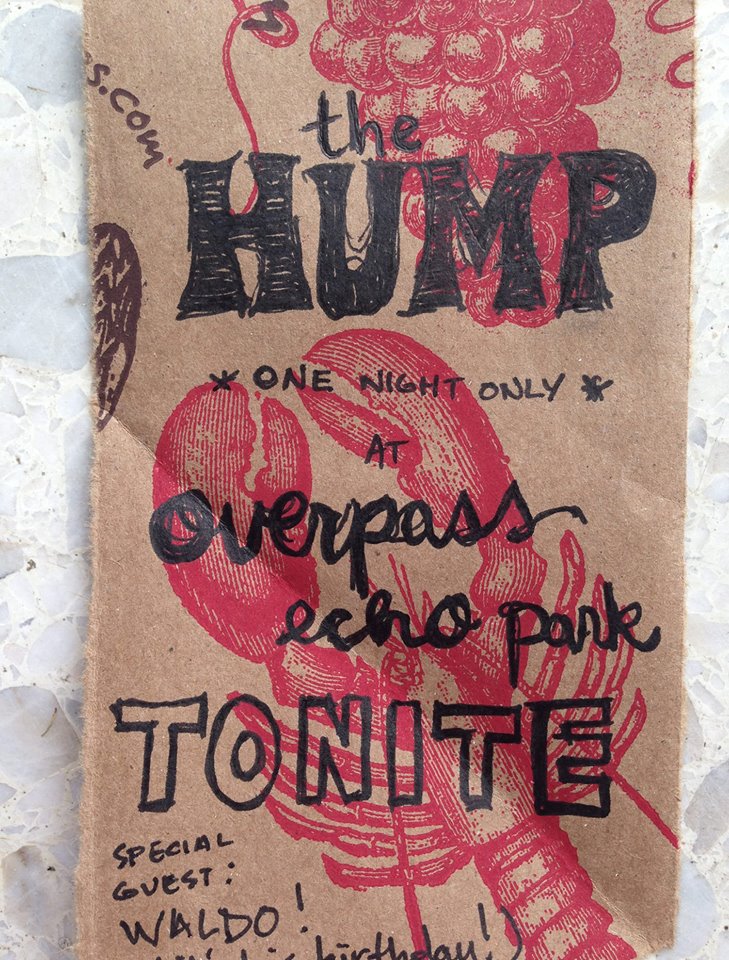 s.com
the
HUMP
* ONE NIGHT ONLY *
AT
overpass
echo park
TONITE
SPECIAL
GUEST:
WALDO!
birthday!)